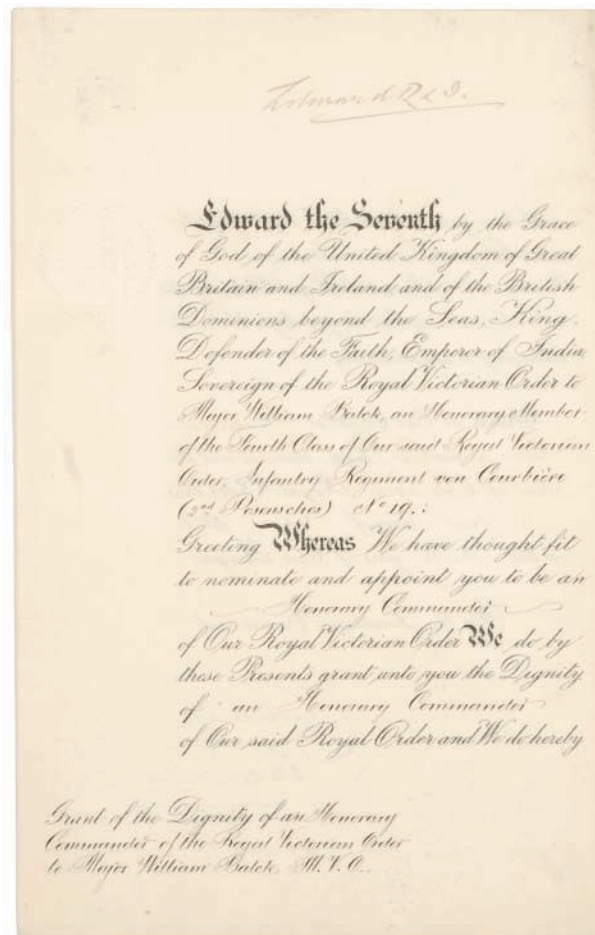 Edward R & I.
Edward the Seventh by the Grace
of God of the United Kingdom of Great
Britain and Ireland and of the British
Dominions beyond the Seas, King,
Defender of the Faith, Emperor of India,
Sovereign of the Royal Victorian Order to
Major William Balck, an Honorary Member
of the Fourth Class of Our said Royal Victorian
Order, Infantry Regiment von Courbière
(2nd Posensches) No 19.:
Greeting Whereas We have thought fit
to nominate and appoint you to be an
Honorary Commander
of Our Royal Victorian Order We do by
these Presents grant unto you the Dignity
of an Honorary Commander
of Our said Royal Order and We do hereby
Grant of the Dignity of an Honorary
Commander of the Royal Victorian Order
to Major William Balck, M.V.O.